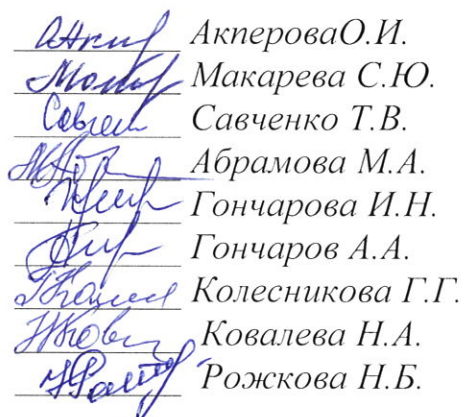 Акперова О.И.
Макарева С.Ю.
Савченко Т.В.
Абрамова М.А.
Гончарова И.Н.
Гончаров А.А.
Колесникова Г.Г.
Ковалева Н.А.
Рожкова Н.Б.